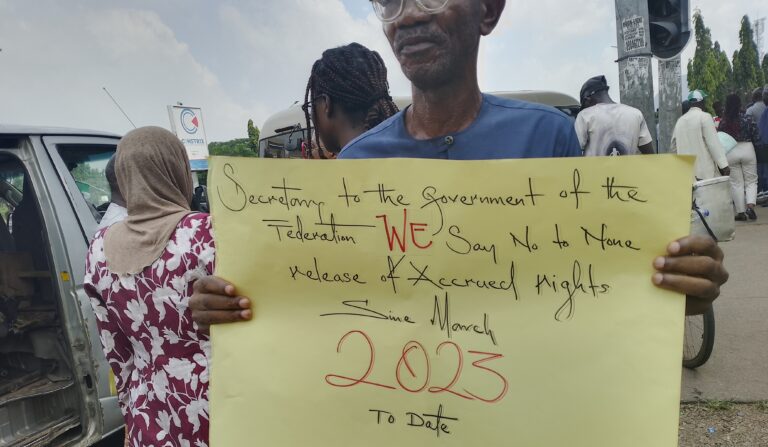 Secretary to the Government of the
Federation WE Say No to None
release of Accrued Rights
Sinc March
2023
To Date